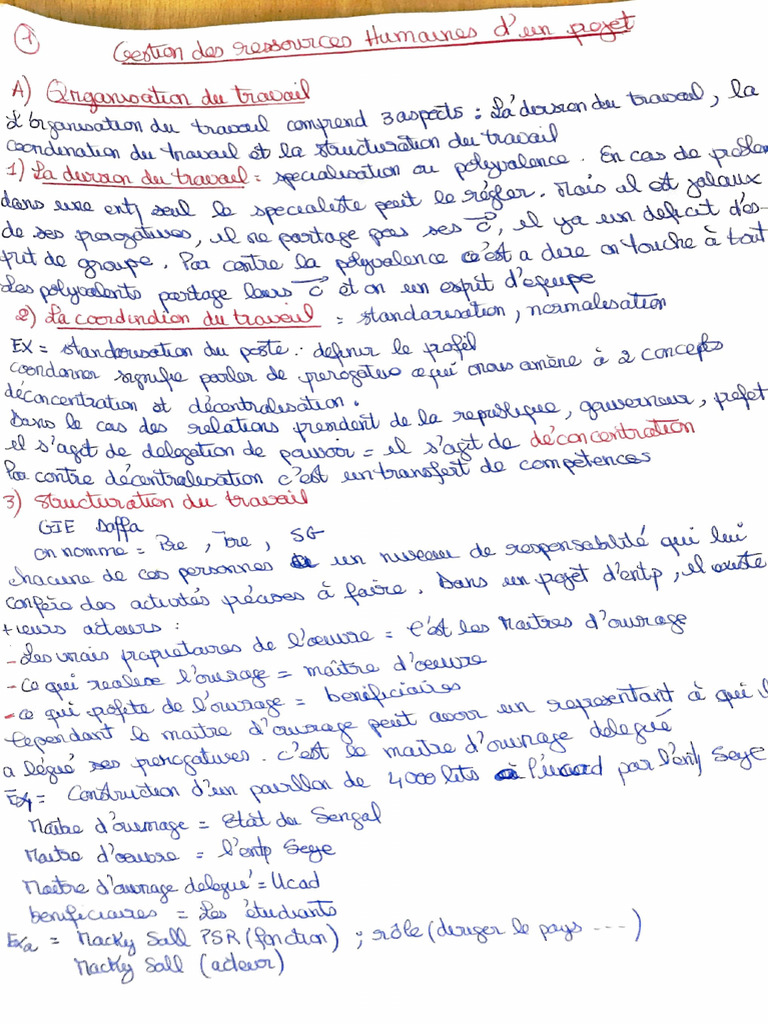 1
Gestion des ressources Humaines d'un projet
A) Organisation du travail
L'organisation du travail comprend 3 aspects : La division du travail, la
coordination du travail et la structuration du travail
1) La division du travail = specialisation ou polyvalence. En cas de problem
dans une entp seul le specialiste peut le régler. Mais il est jalaux
de ses prerogatives, il ne partage pas ses C, il ya un deficit d'es-
prit de groupe. Par contre la polyvalence c'est a dire on touche à tout
Les polyvalents partage leurs C et on un esprit d'équipe
2) La coordindion du travail = standarisation, normalisation
EX = standarisation du poste : definir le profil
coordonner signifie parler de prerogative ce qui nous amène à 2 concepts
déconcentration et décentralisation.
Dans le cas des relations president de la republique, gouverneur, prefet
il s'agit de delegation de pouvoir = il s'agit de déconcentration
Par contre décentralisation c'est un transfert de compétences
3) Structuration du travail
GIE Daffa
on nomme = Pre, Tre, SG
chacune de ces personnes un niveau de responsabilité qui lui
confère des activités précises à faire. Dans un projet d'entp, il existe
+ieurs acteurs :
- Les vrais propriétaires de l'oeuvre = c'est les Maitres d'ouvrage
- Ce qui realise l'ouvrage = maître d'oeuvre
- ce qui profite de l'ouvrage = beneficiaires
Cependant le maitre d'ouvrage peut avoir un representant à qui il
a légué ses prerogatives. c'est le maitre d'ouvrage delegué
Ex1 = Construction d'un pavillon de 4000 lits à l'ucad par l'entp Seye
Maitre d'ouvrage = Etat du Sengal
Maitre d'oeuvre = l'entp Seye
Maitre d'ouvrage delegué = Ucad
beneficiaires = Les étudiants
Ex2 = Macky Sall PSR (fonction) ; rôle (diriger le pays ...)
Macky Sall (acteur)